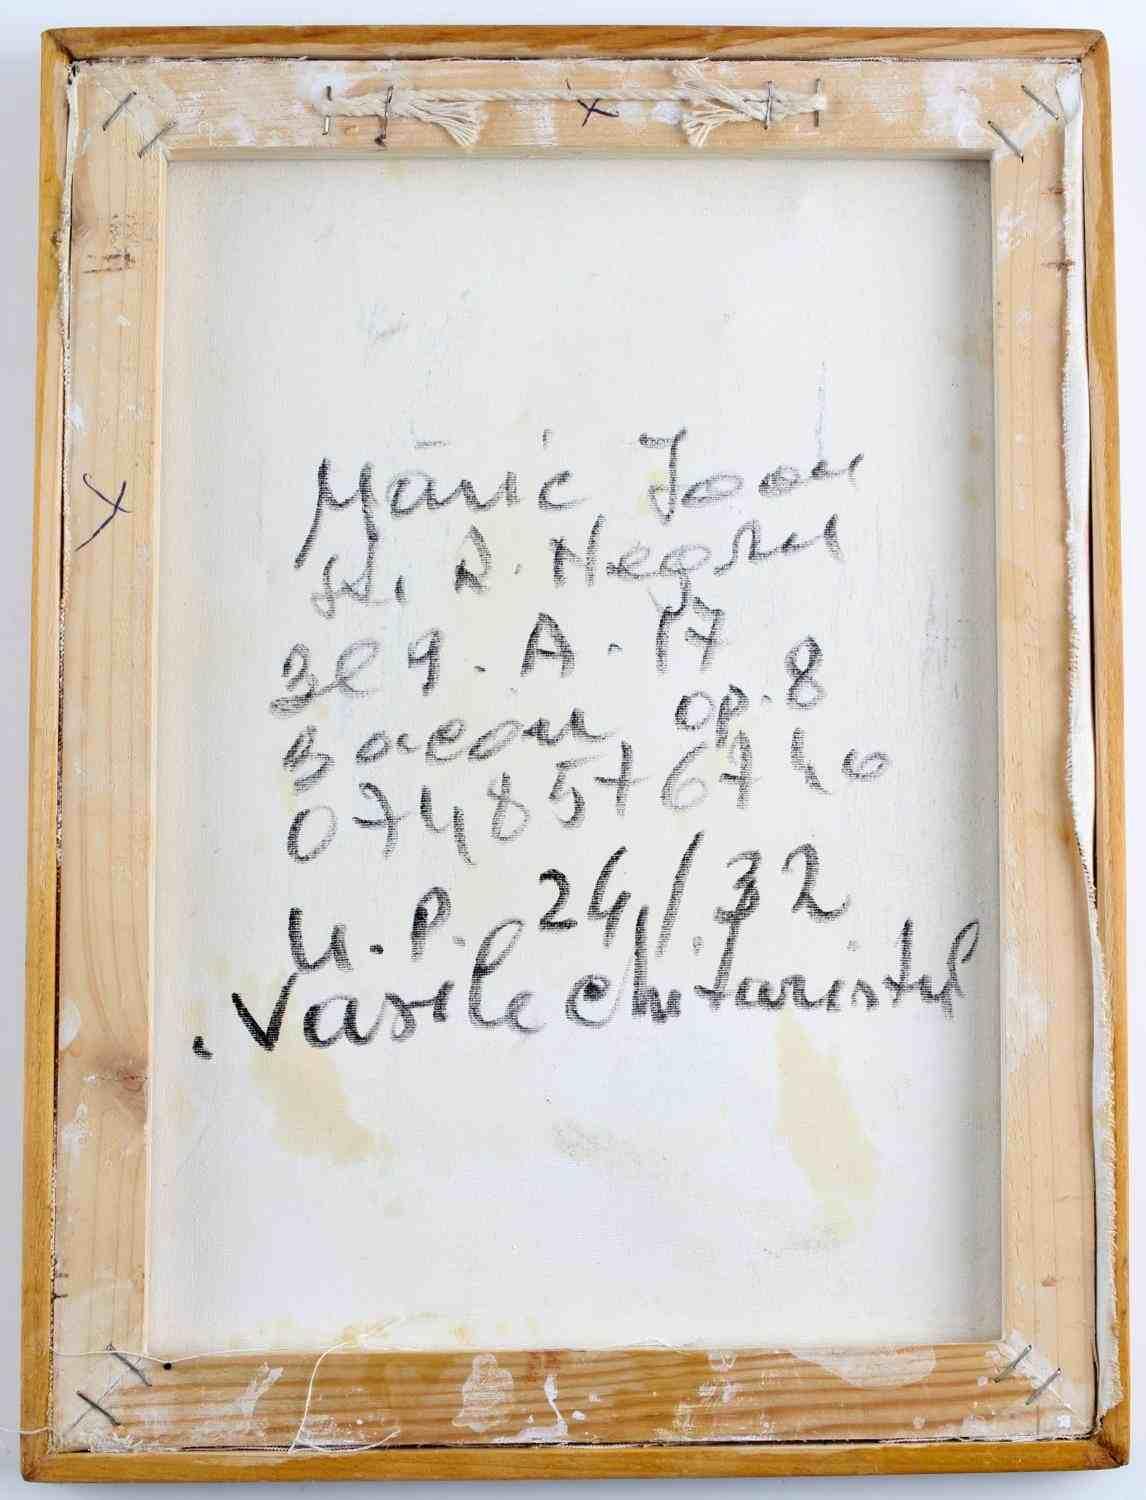 Măric Ioan
str. R. Negru
Bl 9. A. 17
Bacau op. 8
0748576740
U.P. 24/32
.Vasile Chituristul